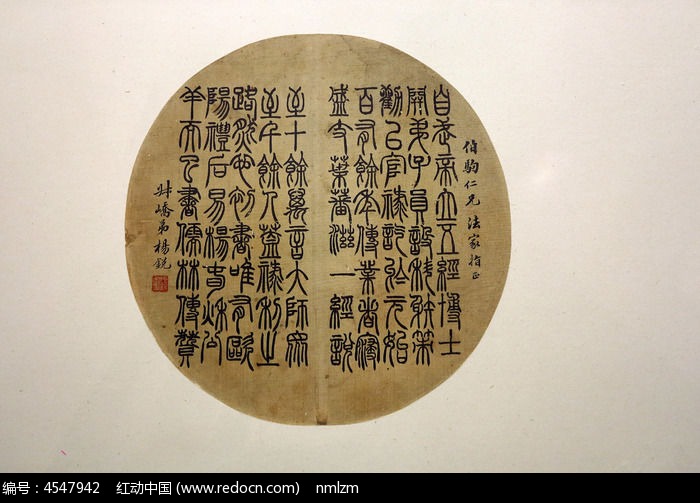 伯駒仁兄法家指正
自武帝立五經博士
開弟子員設科射策
勸以官祿訖於元始
百有餘年傳業者寖
盛支葉蕃滋一經說
至十餘萬言大師眾
至千餘人蓋祿利之
路然也初書唯有歐
陽禮后易楊春秋公
羊而已書儒林傳贊
叔嶠弟楊銳
编号:4547942 红动中国 (www.redocn.com) nmlzm